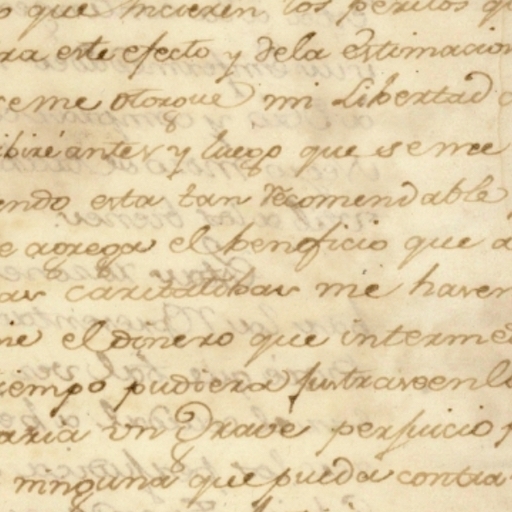 o que hicieren los peritos q
ra este efecto y dela estimacion
se me otorgue mi Libertad
ibiré antes y luego que se me
endo esta tan recomendable
e agrega el beneficio que a
as caritatibas me haven
me el dinero que interme
tiempo pudiera
aria un Grave perjuicio
ninguna que pueda contra